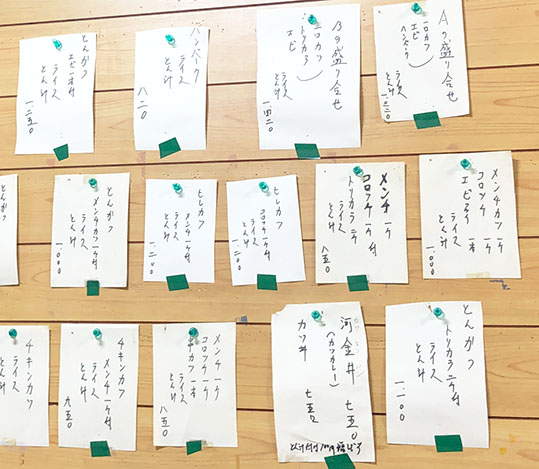 Aの盛り合せ
一口カツ
エビ
ハンバーグ
ライス
とん汁
Bの盛り合せ
一口カツ
トリカラ
エビ
ライス
とん汁
一、四二〇
ハンバーグ
ライス
とん汁
八二〇
とんかつ
エビ一本付
ライス
とん汁
一、二五〇
メンチカツ 一ケ
コロッケ 一ケ
エビフライ 一本
ライス
とん汁
一、一〇〇
メンチ 一ケ
コロッケ 一ケ付
トリカラ 二ケ
ライス
とん汁
八五〇
ヒレカツ
コロッケ一ケ付
ライス
とん汁
ヒレカツ
メンチ一ケ付
ライス
とん汁
一、二〇〇
とんかつ
メンチカツ一ケ付
ライス
とん汁
一、〇〇〇
とんかつ
トリカラ二ケ付
ライス
とん汁
一、一〇〇
河金丼 七五〇
(カツカレー)
カツ丼 七五〇
メンチ 一ケ
コロッケ 一ケ
チキンカツ 一本
ライス
とん汁
八五〇
チキンカツ
メンチ一ケ付
ライス
とん汁
九五〇
チキンカツ
ライス
とん汁